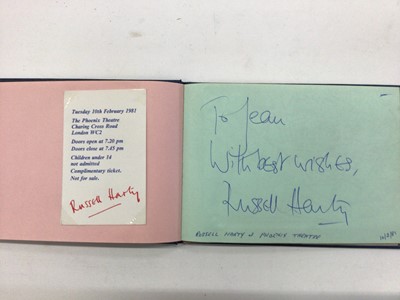 Tuesday 10th February 1981
The Phoenix Theatre
Charing Cross Road
London WC2
Doors open at 7.20 pm
Doors close at 7.45 pm
Children under 14
not admitted
Complimentary ticket.
Not for sale.
Russell Harty
To Jean
With best wishes,
Russell Harty
RUSSELL HARTY @ PHOENIX THEATRE